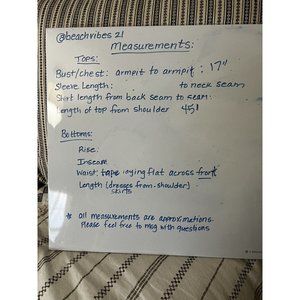 @beachvibes 21
Measurements:
Tops:
Bust/chest: armpit to armpit: 17"
Sleeve Length: to neck seam
Shirt length from back seam to seam:
Length of top from shoulder 45"
Bottoms:
Rise:
Inseam
Waist: tape laying flat across front
Length (dresses from shoulder)
skirts
* all measurements are approximations.
Please feel free to msg with questions